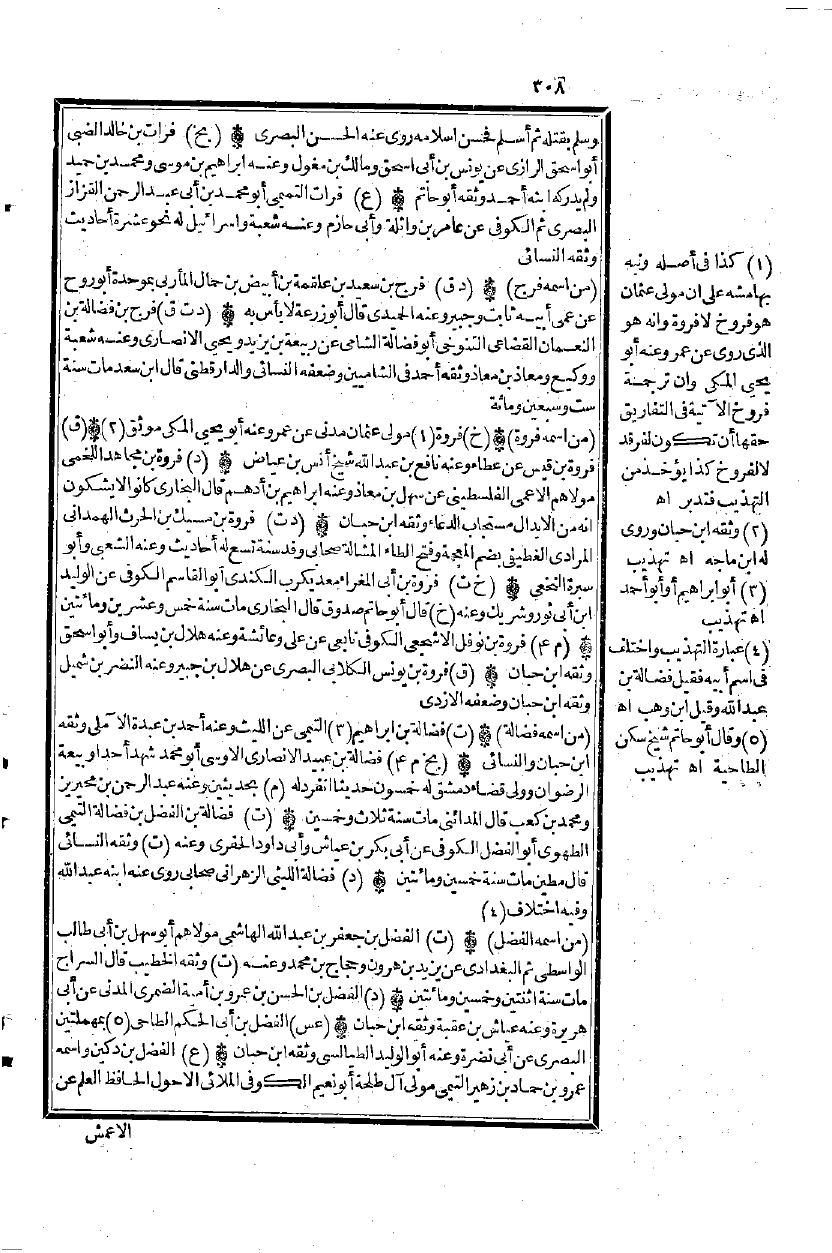 ٣٠٨
وسلم بقتله ثم أسلم فحسن اسلامه روى عنه الحسن البصرى ۞ (بخ) فرات بن خالد الضبى
أبو اسحق الرازى عن يونس بن أبى اسحق ومالك بن مغول وعنه ابراهيم بن موسى ومحمد بن حميد
ولم يدركه ابنه أحمد وثقه أبو حاتم ۞ (ع) فرات التميمى أبو محمد بن أبى عبد الرحمن القزاز
البصرى ثم الكوفى عن عامر بن واثلة وأبى حازم وعنه شعبة واسرائيل له نحو عشرة أحاديث
وثقه النسائى
(من اسمه فرج) ۞ (د ق) فرج بن سعيد بن علقمة بن أبيض بن حمال المأربى بموحدة أبو روح
عن عمى أبيه ثابت وجبير وعنه الحميدى قال أبو زرعة لا بأس به ۞ (د ت ق) فرج بن فضالة بن
النعمان القضاعى التنوخى أبو فضالة الشامى عن ربيعة بن يزيد ويحيى الانصارى وعنه شعبة
ووكيع ومعاذ بن معاذ وثقه أحمد فى الشاميين وضعفه النسائى والدارقطنى قال ابن سعد مات سنة
ست وسبعين ومائة
(من اسمه فروة) ۞ (خ) فروة (١) مولى عثمان مدنى عن عمر وعنه أبو يحيى المكى موثق (٢) ۞ (ق)
فروة بن قيس عن عطاء وعنه نافع بن عبد الله شيخ أنس بن عياض ۞ (د) فروة بن مجاهد اللخمى
مولاهم الاعمى الفلسطينى عن سهل بن معاذ وعنه ابراهيم بن أدهم قال البخارى كانوا لا يشكون
انه من الابدال مستجاب الدعاء وثقه ابن حبان ۞ (د ت) فروة بن مسيك بن الحرث الهمدانى
المرادى الغطيفى بضم المعجمة وفتح الطاء المشالة صحابى وفد سنة تسع له أحاديث وعنه الشعبى وأبو
سبرة النخعى ۞ (خ ت) فروة بن أبى المغراء معد يكرب الكندى أبو القاسم الكوفى عن الوليد
ابن أبى ثور وشريك وعنه (خ) قال أبو حاتم صدوق قال البخارى مات سنة خمس وعشرين ومائتين
۞ (م ٤) فروة بن نوفل الاشجعى الكوفى تابعى عن على وعائشة وعنه هلال بن يساف وأبو اسحق
وثقه ابن حبان ۞ (ق) فروة بن يونس الكلابى البصرى عن هلال بن جبير وعنه النضر بن شميل
وثقه ابن حبان وضعفه الازدى
(من اسمه فضالة) ۞ (ت) فضالة بن ابراهيم (٣) التيمى عن الليث وعنه أحمد بن عبدة الآملى وثقه
ابن حبان والنسائى ۞ (بخ م ٤) فضالة بن عبيد الانصارى الاوسى أبو محمد شهد أحدا وبيعة
الرضوان وولى قضاء دمشق له خمسون حديثا انفرد له (م) بحديثين وعنه عبد الرحمن بن محيريز
ومحمد بن كعب قال المدائنى مات سنة ثلاث وخمسين ۞ (ت) فضالة بن الفضل بن فضالة التيمى
الطهوى أبو الفضل الكوفى عن أبى بكر بن عياش وأبى داود الحفرى وعنه (ت) وثقه النسائى
قال مطين مات سنة خمسين ومائتين ۞ (د) فضالة الليثى الزهرانى صحابى روى عنه ابنه عبد الله
وفيه اختلاف (٤)
(من اسمه الفضل) ۞ (ت) الفضل بن جعفر بن عبد الله الهاشمى مولاهم أبو سهل بن أبى طالب
الواسطى ثم البغدادى عن يزيد بن هرون وحجاج بن محمد وعنه (ت) وثقه الخطيب قال السراج
مات سنة اثنتين وخمسين ومائتين ۞ (د) الفضل بن الحسن بن عمرو بن أمية الضمرى المدنى عن أبى
هريرة وعنه عياش بن عقبة وثقه ابن حبان ۞ (عس) الفضل بن أبى الحكم الطاحى (٥) بمهملتين
البصرى عن أبى نضرة وعنه أبو الوليد الطيالسى وثقه ابن حبان ۞ (ع) الفضل بن دكين واسمه
عمرو بن حماد بن زهير التيمى مولى آل طلحة أبو نعيم الكوفى الملائى الاحول الحافظ العلم عن
الاعمش
(١) كذا فى أصله ونبه
بهامشه على ان مولى عثمان
هو فروخ لا فروة وانه هو
الذى روى عن عمر وعنه أبو
يحيى المكى وان ترجمة
فروخ الآتية فى التفاريق
حقها أن تكون لفرقد
لا لفروخ كذا يؤخذ من
التهذيب فتدبر اه
(٢) وثقه ابن حبان وروى
له ابن ماجه اه تهذيب
(٣) أبو ابراهيم أو أبو أحمد
اه تهذيب
(٤) عبارة التهذيب واختلف
فى اسم أبيه فقيل فضالة بن
عبد الله وقيل ابن وهب اه
(٥) وقال أبو حاتم شيخ سكن
الطاحية اه تهذيب